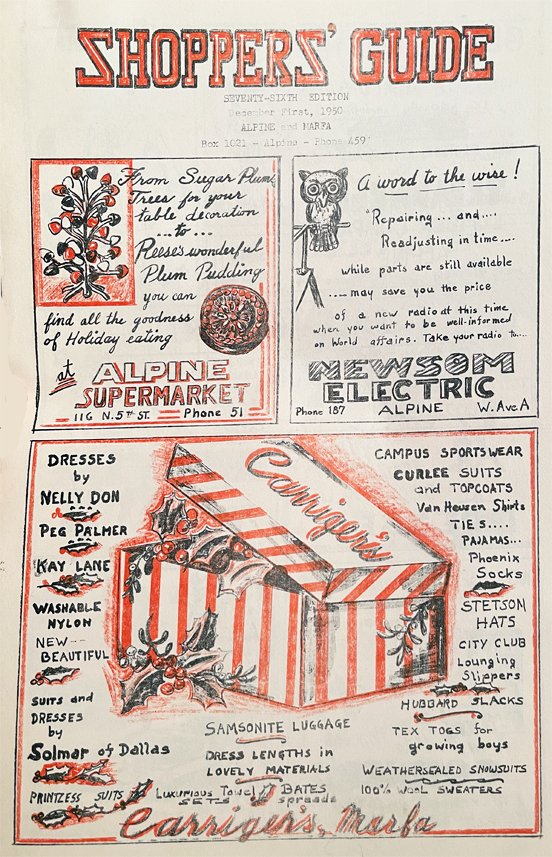 SHOPPERS' GUIDE
SEVENTY-SIXTH EDITION
December First, 1950
ALPINE and MARFA
Box 1021 - Alpine - Phone 459
From Sugar Plum
Trees for your
table decoration
...to...
Reese's wonderful
Plum Pudding
you can
find all the goodness
of Holiday eating
at ALPINE
SUPERMARKET
116 N. 5TH ST. Phone 51
A word to the wise!
"Repairing... and....
Readjusting in time....
while parts are still available
....may save you the price
of a new radio at this time
when you want to be well-informed
on World affairs. Take your radio to....
NEWSOM
ELECTRIC
Phone 187 ALPINE W. Ave A
Carriger's
DRESSES
by
NELLY DON
PEG PALMER
KAY LANE
WASHABLE
NYLON
NEW--
BEAUTIFUL
SUITS and
DRESSES
by
Solmar of Dallas
PRINTZESS SUITS
SAMSONITE LUGGAGE
DRESS LENGTHS in
LOVELY MATERIALS
Luxurious Towel
SETS
BATES
spreads
CAMPUS SPORTSWEAR
CURLEE SUITS
and TOPCOATS
Van Heusen Shirts
TIES....
PAJAMAS...
Phoenix
Socks
STETSON
HATS
CITY CLUB
Lounging
Slippers
HUBBARD SLACKS
TEX TOGS for
growing boys
WEATHERSEALED SNOWSUITS
100% WOOL SWEATERS
Carriger's, Marfa